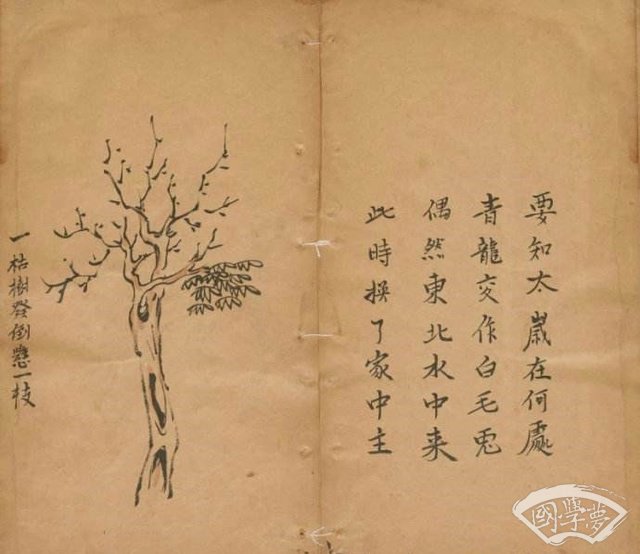 要知太歲在何處
青龍交作白毛兎
偶然東北水中来
此時換了家中主
一枯樹發倒懸一枝
國學夢